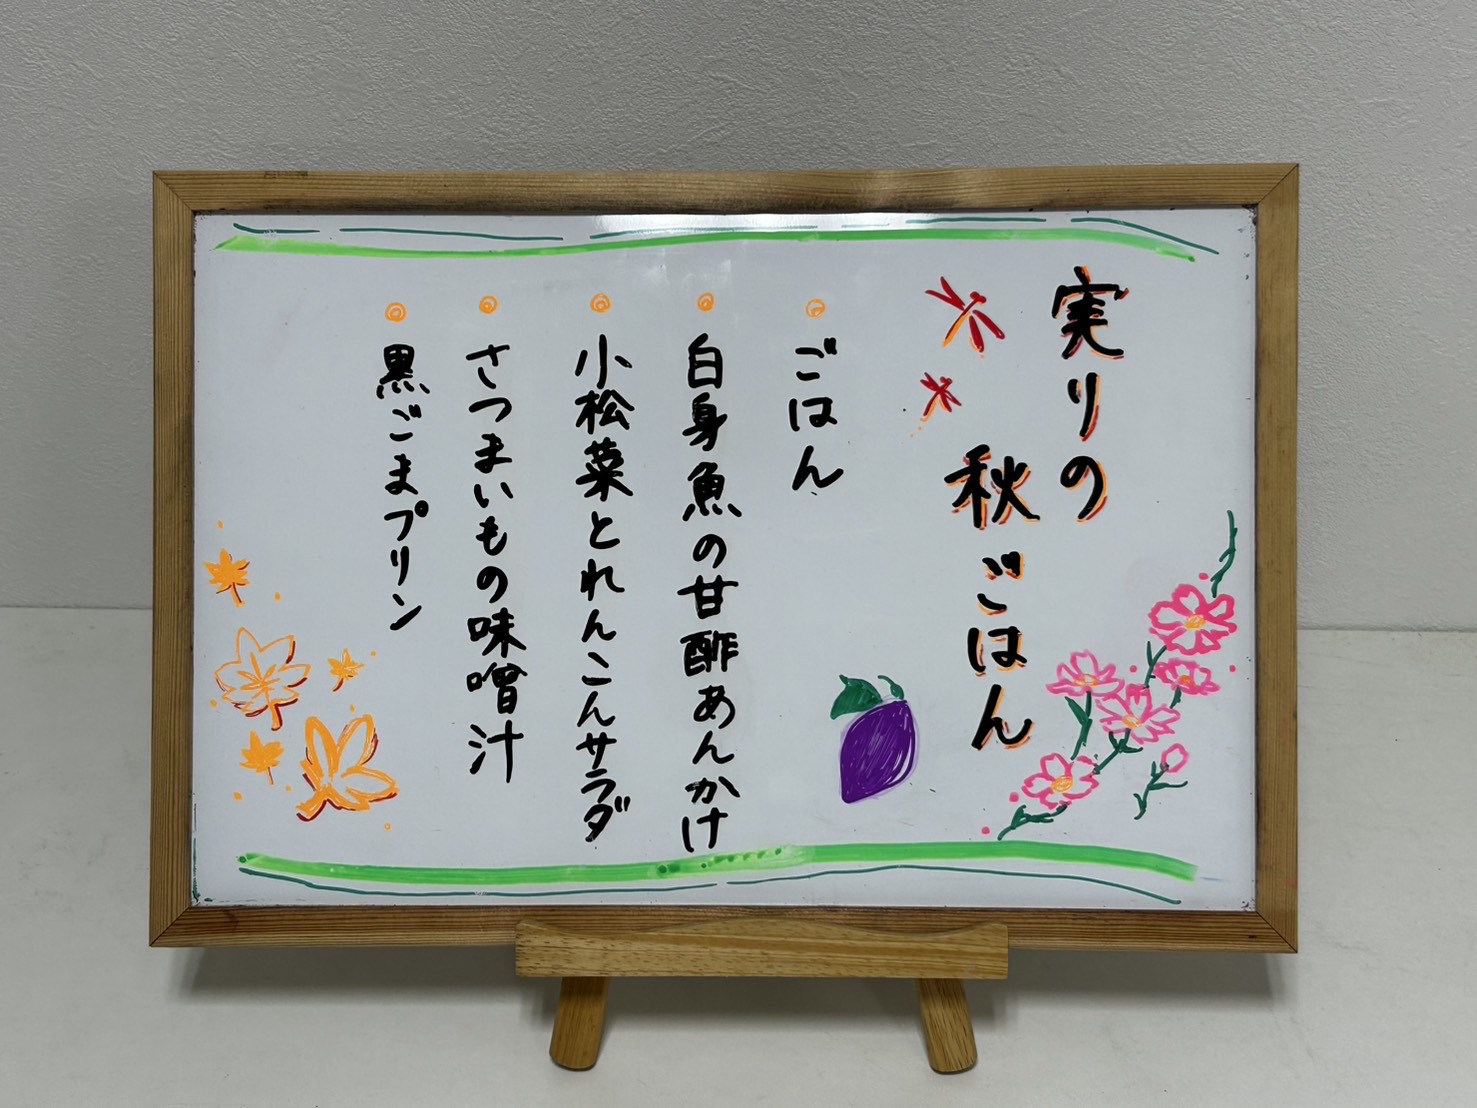 実りの
秋ごはん
ごはん
白身魚の甘酢あんかけ
小松菜とれんこんサラダ
さつまいもの味噌汁
黒ごまプリン